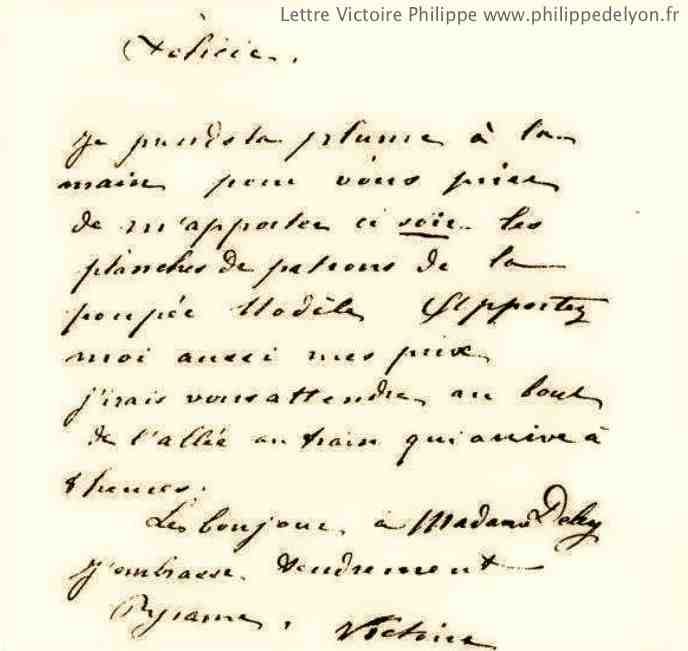 Lettre Victoire Philippe www.philippedelyon.fr
Félicie.
Je prends la plume à la
main pour vous prier
de m'apporter ce soir les
planches de patrons de la
poupée Modèle Apportez
moi aussi mes prix
j'irais vous attendre au bout
de l'allée au train qui arrive à
8 heures.
Le bonjour à Madame
J'embrasse tendrement
Pyrame. Victoire